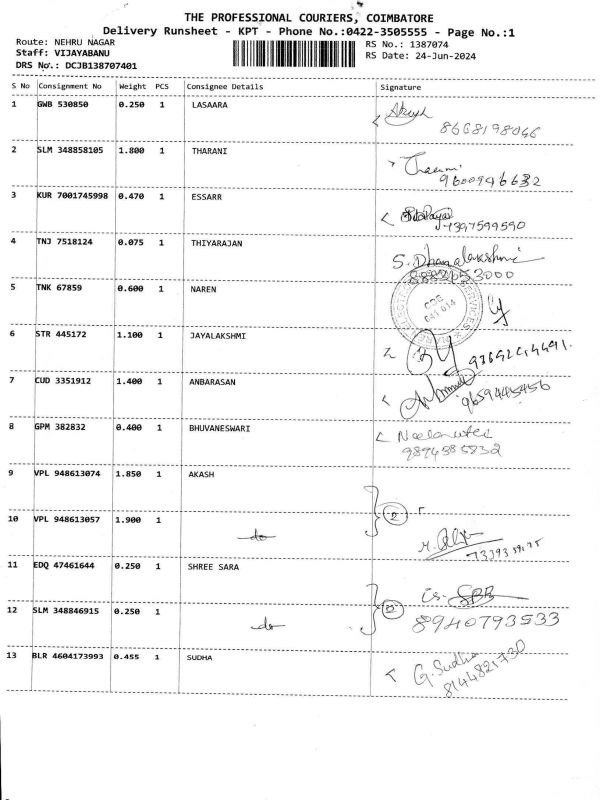 THE PROFESSIONAL COURIERS, COIMBATORE
Delivery Runsheet - KPT - Phone No.:0422-3505555 - Page No.:1
Route: NEHRU NAGAR
RS No.: 1387074
Staff: VIJAYABANU
RS Date: 24-Jun-2024
DRS No.: DCJB138707401
S No Consignment No Weight PCS Consignee Details Signature
1 GWB 530850 0.250 1 LASAARA
8668198046
2 SLM 348858105 1.800 1 THARANI
9600946632
3 KUR 7001745998 0.470 1 ESSARR
7397599590
4 TNJ 7518124 0.075 1 THIYARAJAN
S. Dhanalakshmi
5 TNK 67859 0.600 1 NAREN
6 STR 445172 1.100 1 JAYALAKSHMI
7 CUD 3351912 1.400 1 ANBARASAN
9659445456
8 GPM 382832 0.400 1 BHUVANESWARI
9894385832
9 VPL 948613074 1.850 1 AKASH
2
10 VPL 948613057 1.900 1 do
11 EDQ 47461644 0.250 1 SHREE SARA
12 SLM 348846915 0.250 1 do
8940793533
13 BLR 4604173993 0.455 1 SUDHA
G. Sudha
8144821730